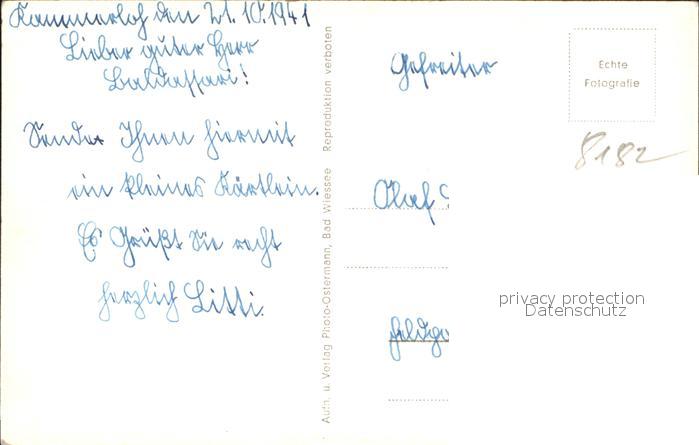 Kammerloh den 21.10.1941
Lieber guter Herr
Baldassari!
Sende Ihnen hiermit
ein kleines Kärtlein.
Es Grüßt Sie recht
herzlich Litti.
Auth. u. Verlag Photo-Ostermann, Bad Wiessee Reproduktion verboten
Gefreiter
Olaf
Feldpo
Echte
Fotografie
8182
privacy protection
Datenschutz